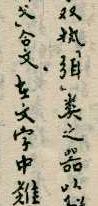 双抓「弭」类之器以
父」合文。在文字中雖